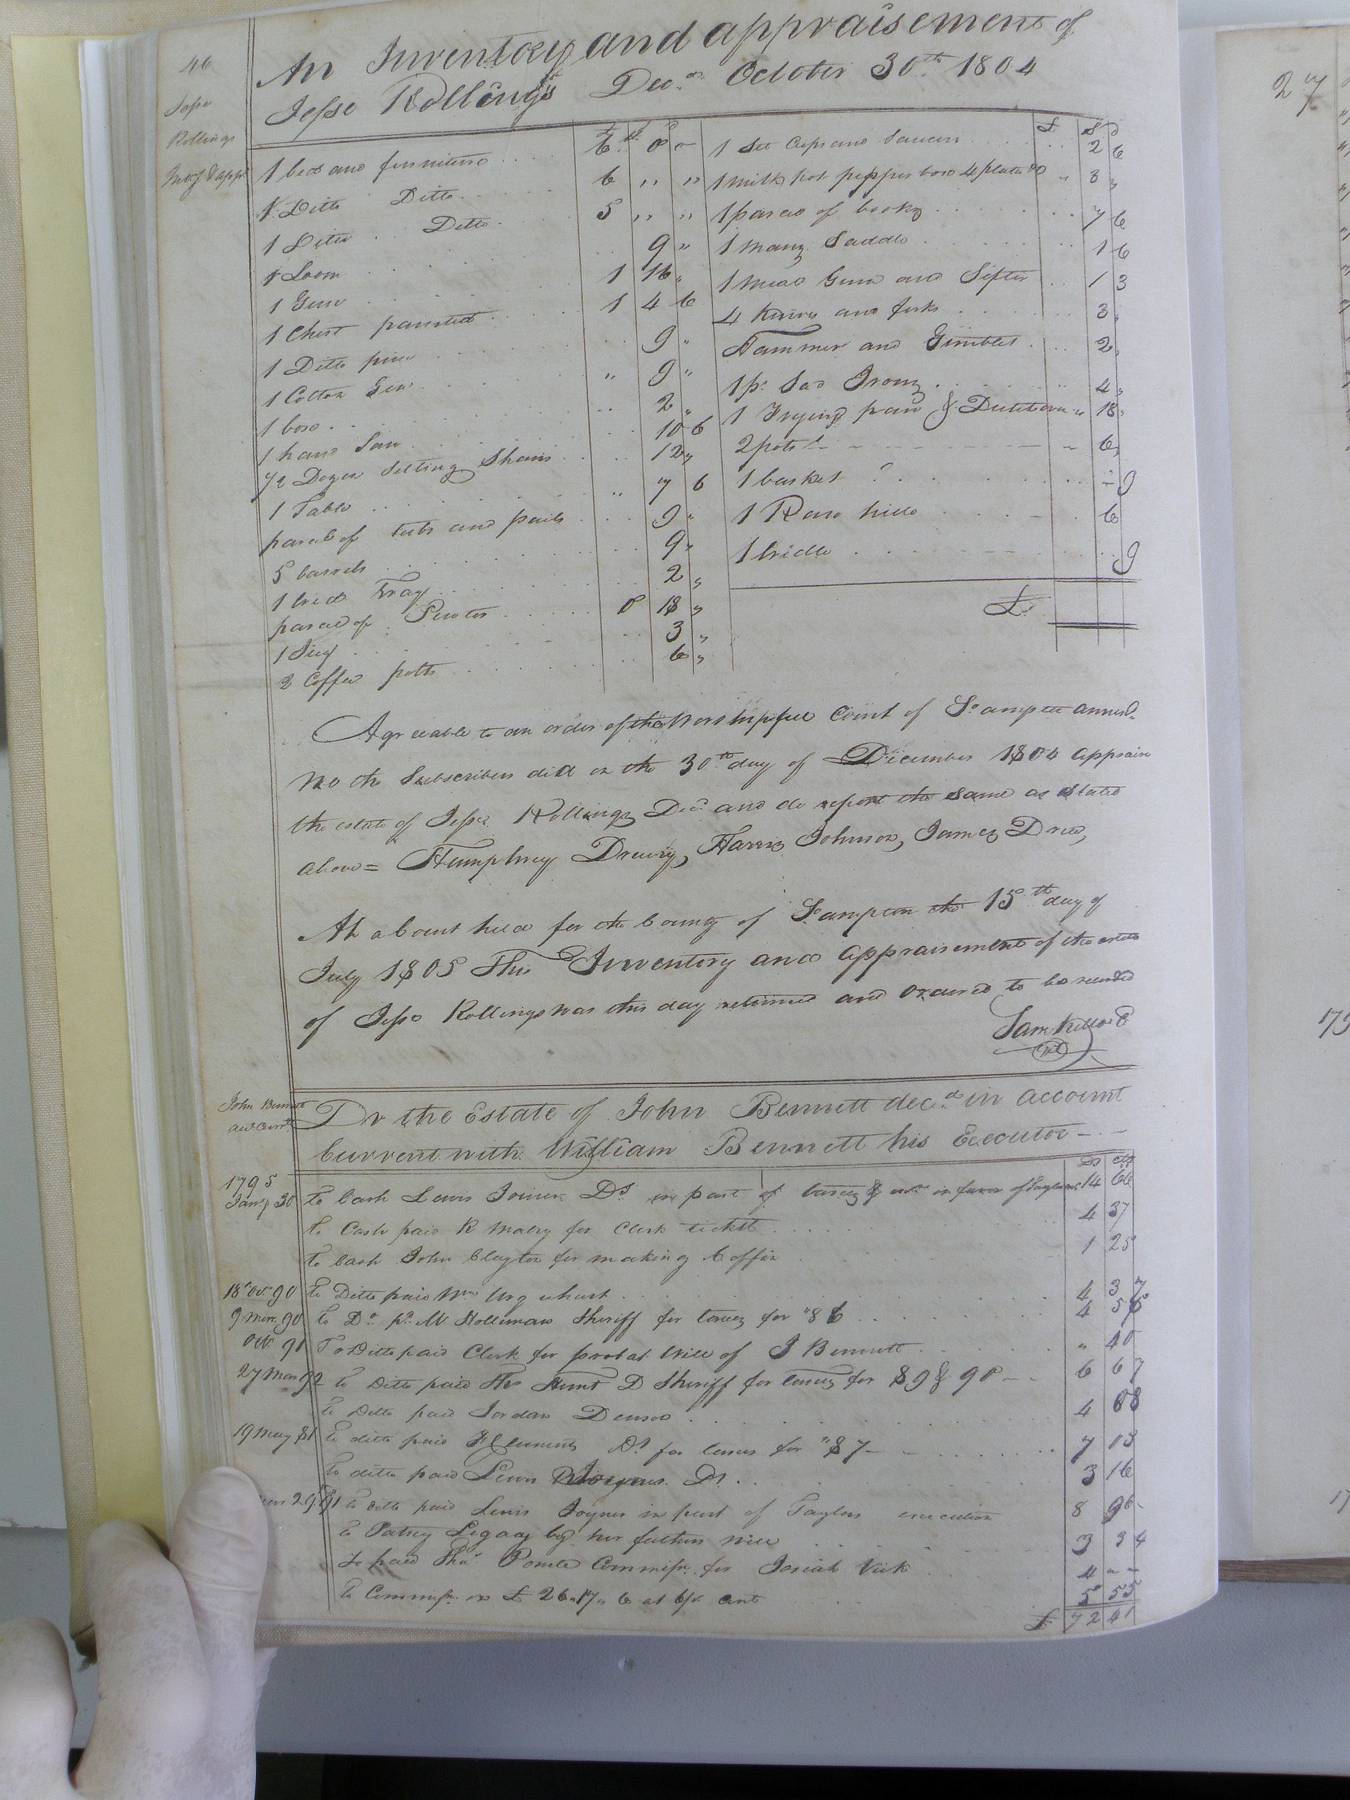 46
Jesse
Rollings
Inv & appt
An Inventory and appraisement of
Jesse Rollings Decd. October 30th 1804
£ S D
1 bed and furniture 6 0 0
1 Ditto Ditto 6 " "
1 Ditto Ditto 5 " "
1 Loom 9 "
1 Gun 1 16 "
1 Chest painted 1 4 6
1 Ditto pine 9 "
1 Cotton Gin " 9 "
1 box 2 "
1 hand Saw 10 6
1/2 Dozen Setting Chairs 12 "
1 Table " 7 6
parcel of tubs and pails 9 "
5 barrels 9 "
1 bread Tray 2 "
parcel of Pewter 0 18 "
1 Jug 3 "
2 Coffee potts 6 "
£ S D
1 Set Cups and Saucers 2 6
1 milk pot pepper box 4 plates &c " 3 "
1 parcel of books 7 6
1 mans Saddle 1 6
1 meal Gum and Sifter 1 3
4 knives and forks 3 "
Hammer and Gimblet 2 "
1 pr Sad Irons 4 "
1 Frying pan & " 18 "
2 pots 6 "
1 basket 9
1 Raw hide 6
1 bridle 9
£
Agreeable to an order of the Worshipfull Court of So ampton annexd.
We the Subscribers did on the 30th day of December 1804 appraise
the estate of Jesse Rollings Decd and do report the same as stated
above = Humphrey Drewry, Harris Johnson, James Drew,
At a Court held for the County of So ampton the 15th day of
July 1805 This Inventory and appraisement of the estate
of Jesse Rollings was this day returned and ordered to be recorded
Sam Kello C
John Bennett
acct Currt
Dr the Estate of John Bennett decd. in account
Current with William Bennett his Executor
Ds Cts
1795
Jany 30 to Cash Lewis Joiner DS in part of taxes & in favor of Taylor 14 66
to Cash paid R Malry for Clerk tickett 4 37
to Cash John Clayton for making Coffin 1 25
18 Octr 90 to Ditto paid Wm Urquhart 4 37
9 Mar. 90 to Do pd. M Holliman Sheriff for taxes for "86 4 56
Octr 91 To Ditto paid Clerk for probat Will of J Bennett " 40
27 Mar 92 to Ditto paid Thos Hunt D Sheriff for taxes for 89 & 90 6 67
to Ditto paid Jordan Denson 4 08
19 May 81 to ditto paid Clements DS for taxes for "87 7 13
to ditto paid Lewis Joynes Ds. 3 16
29 91 to ditto paid Lewis Joyner in part of Taylors execution 8 96
to Patsey Legacy by her fathers will 3 34
to paid Thos Pomla Commissr for Josiah Vick 4 - -
to Commissn. on £ 26.17.6 at 6 pr cent 5 55
£ 72 41
27